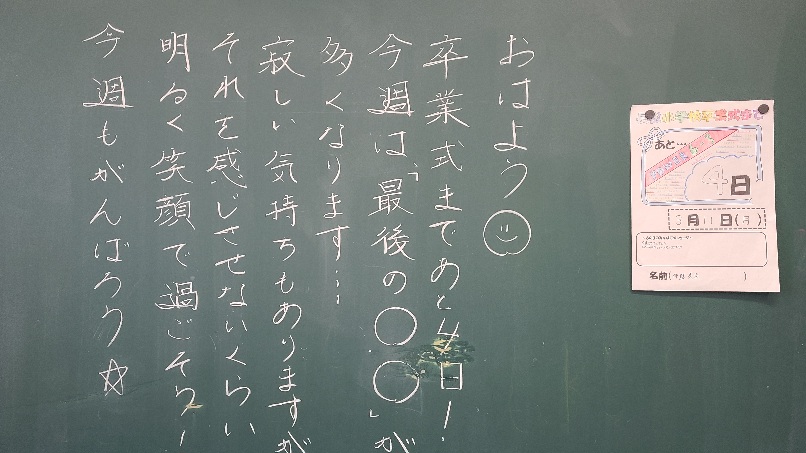 おはよう☺
卒業式まであと4日!
今週は、「最後の〇〇」が
多くなります…
寂しい気持ちもありますが
それを感じさせないくらい
明るく笑顔で過ごそう!
今週もがんばろう☆
あと…
4日
3月11日(月)
名前(